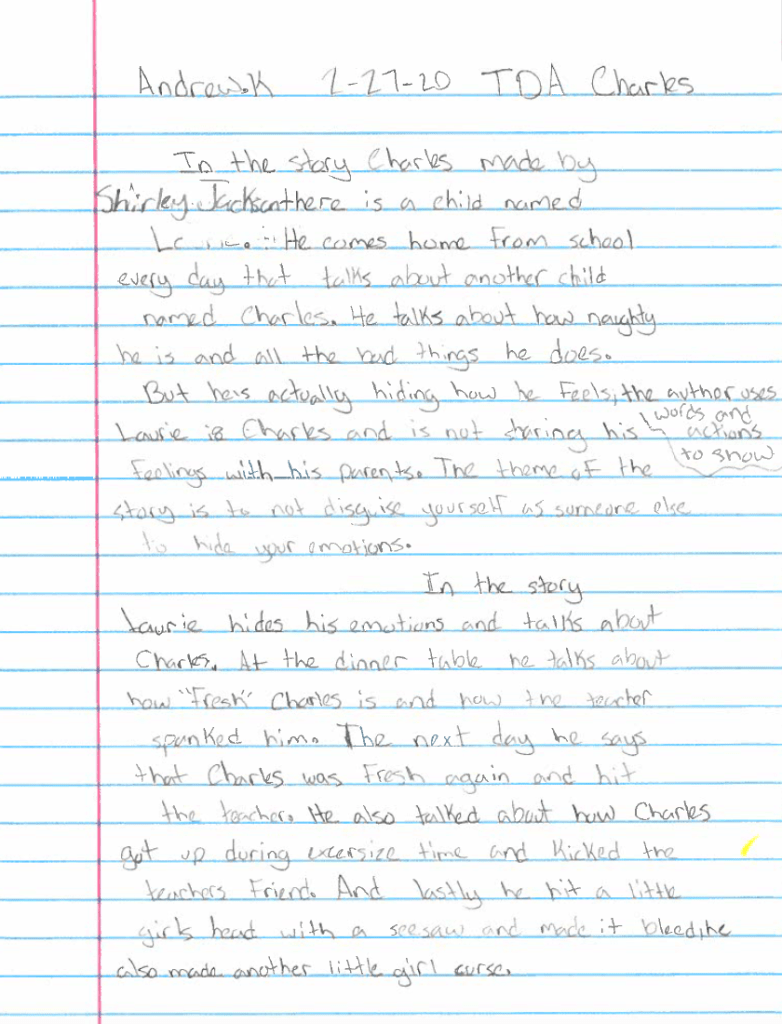 Andrew.K 2-27-20 TDA Charles
In the story Charles made by
Shirley Jackson there is a child named
He comes home from school
every day that talks about another child
named Charles. He talks about how naughty
he is and all the bad things he does.
But hes actually hiding how he feels, the author uses
words and
Laurie is Charles and is not sharing his actions
to show
feelings with his parents. The theme of the
story is to not disguise yourself as someone else
to hide your emotions.
In the story
Laurie hides his emotions and talks about
Charles. At the dinner table he talks about
how "fresh" Charles is and how the teacher
spanked him. The next day he says
that Charles was fresh again and hit
the teacher. He also talked about how Charles
got up during excersize time and kicked the
teachers friend. And lastly he hit a little
girls head with a seesaw and made it bleed, he
also made another little girl curse.